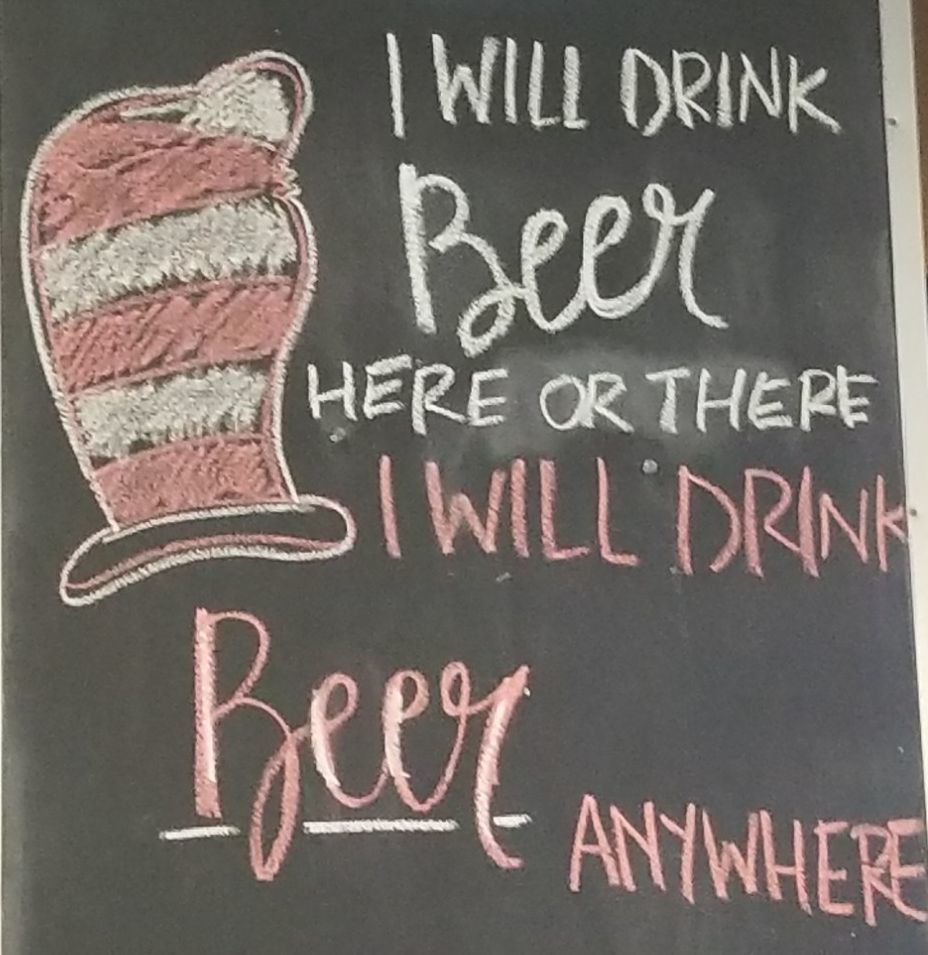 I WILL DRINK
Beer
HERE OR THERE
I WILL DRINK
Beer
ANYWHERE